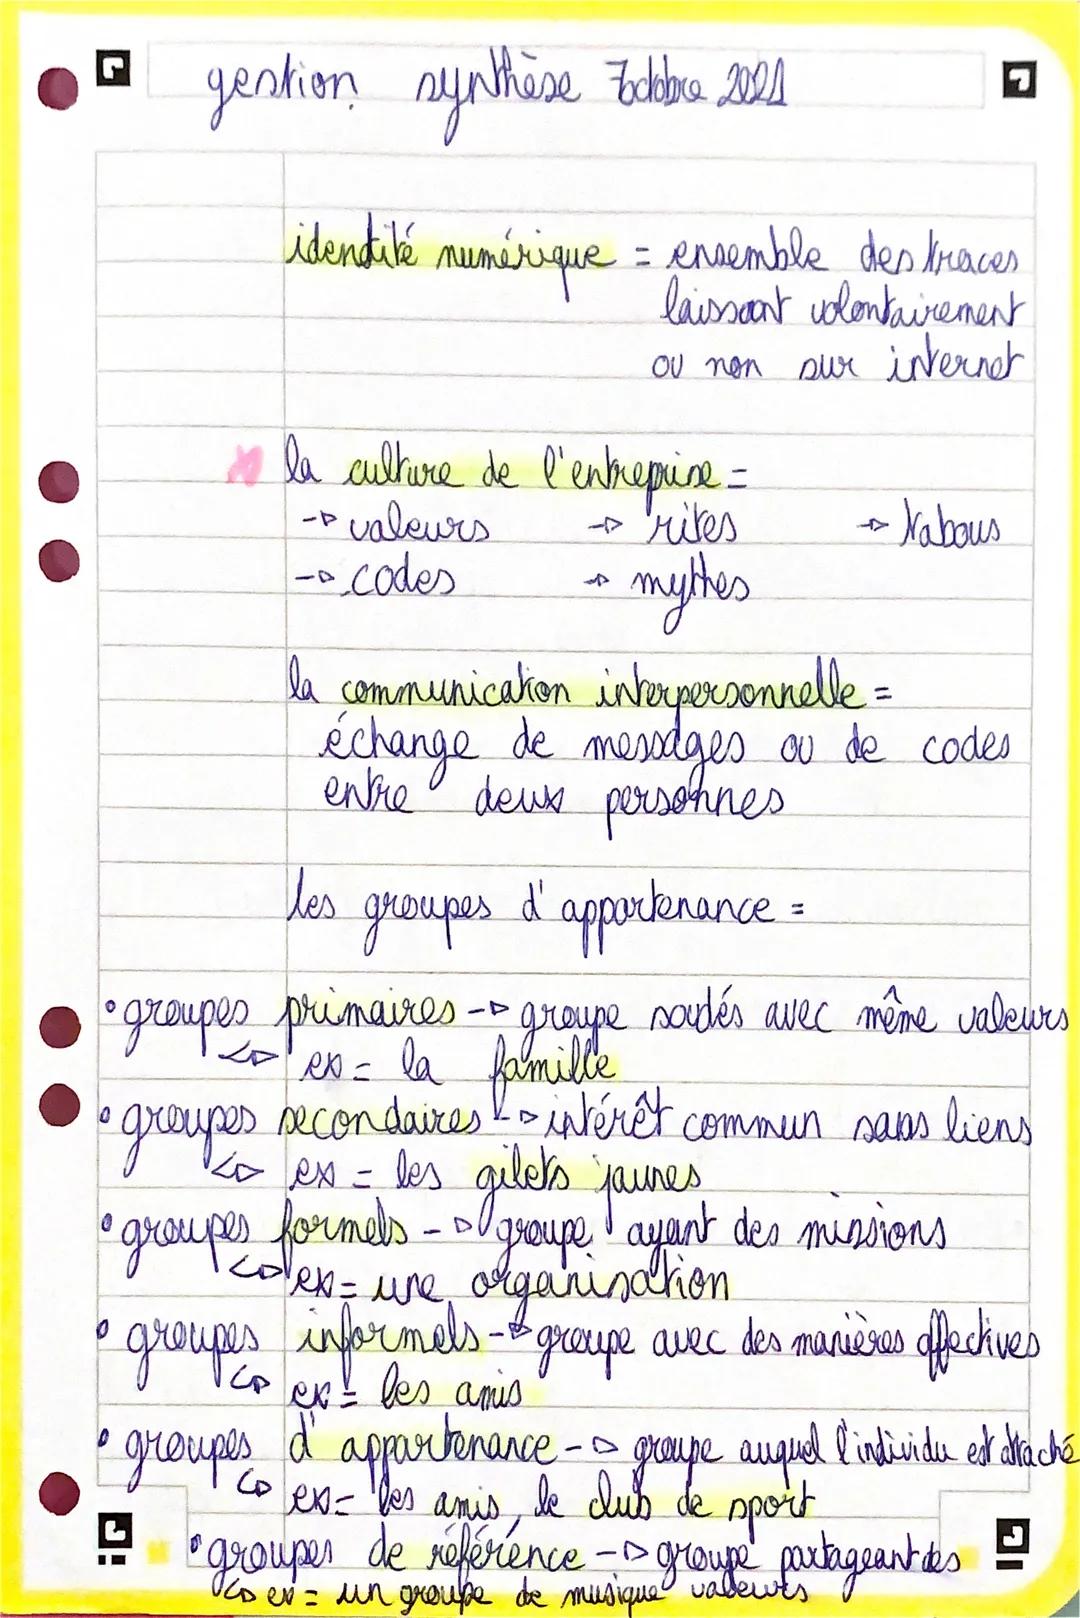 gestion synthèse 7octobre 2021
identité numérique = ensemble des traces
laissant volontairement
ou non sur internet
la culture de l'entreprise =
-> valeurs -> rites -> tabous
-> codes -> mythes
la communication interpersonnelle =
échange de messages ou de codes
entre deux personnes
les groupes d'appartenance =
• groupes primaires -> groupe soudés avec même valeurs
↳ ex = la famille
• groupes secondaires -> intérêt commun sans liens
↳ ex = les gilets jaunes
• groupes formels -> groupe ayant des missions
↳ ex = une organisation
• groupes informels -> groupe avec des manières affectives
↳ ex = les amis
• groupes d'appartenance -> groupe auquel l'individu est attaché
↳ ex = les amis, le club de sport
• groupes de référence -> groupe partageant des
↳ ex = un groupe de musique valeurs